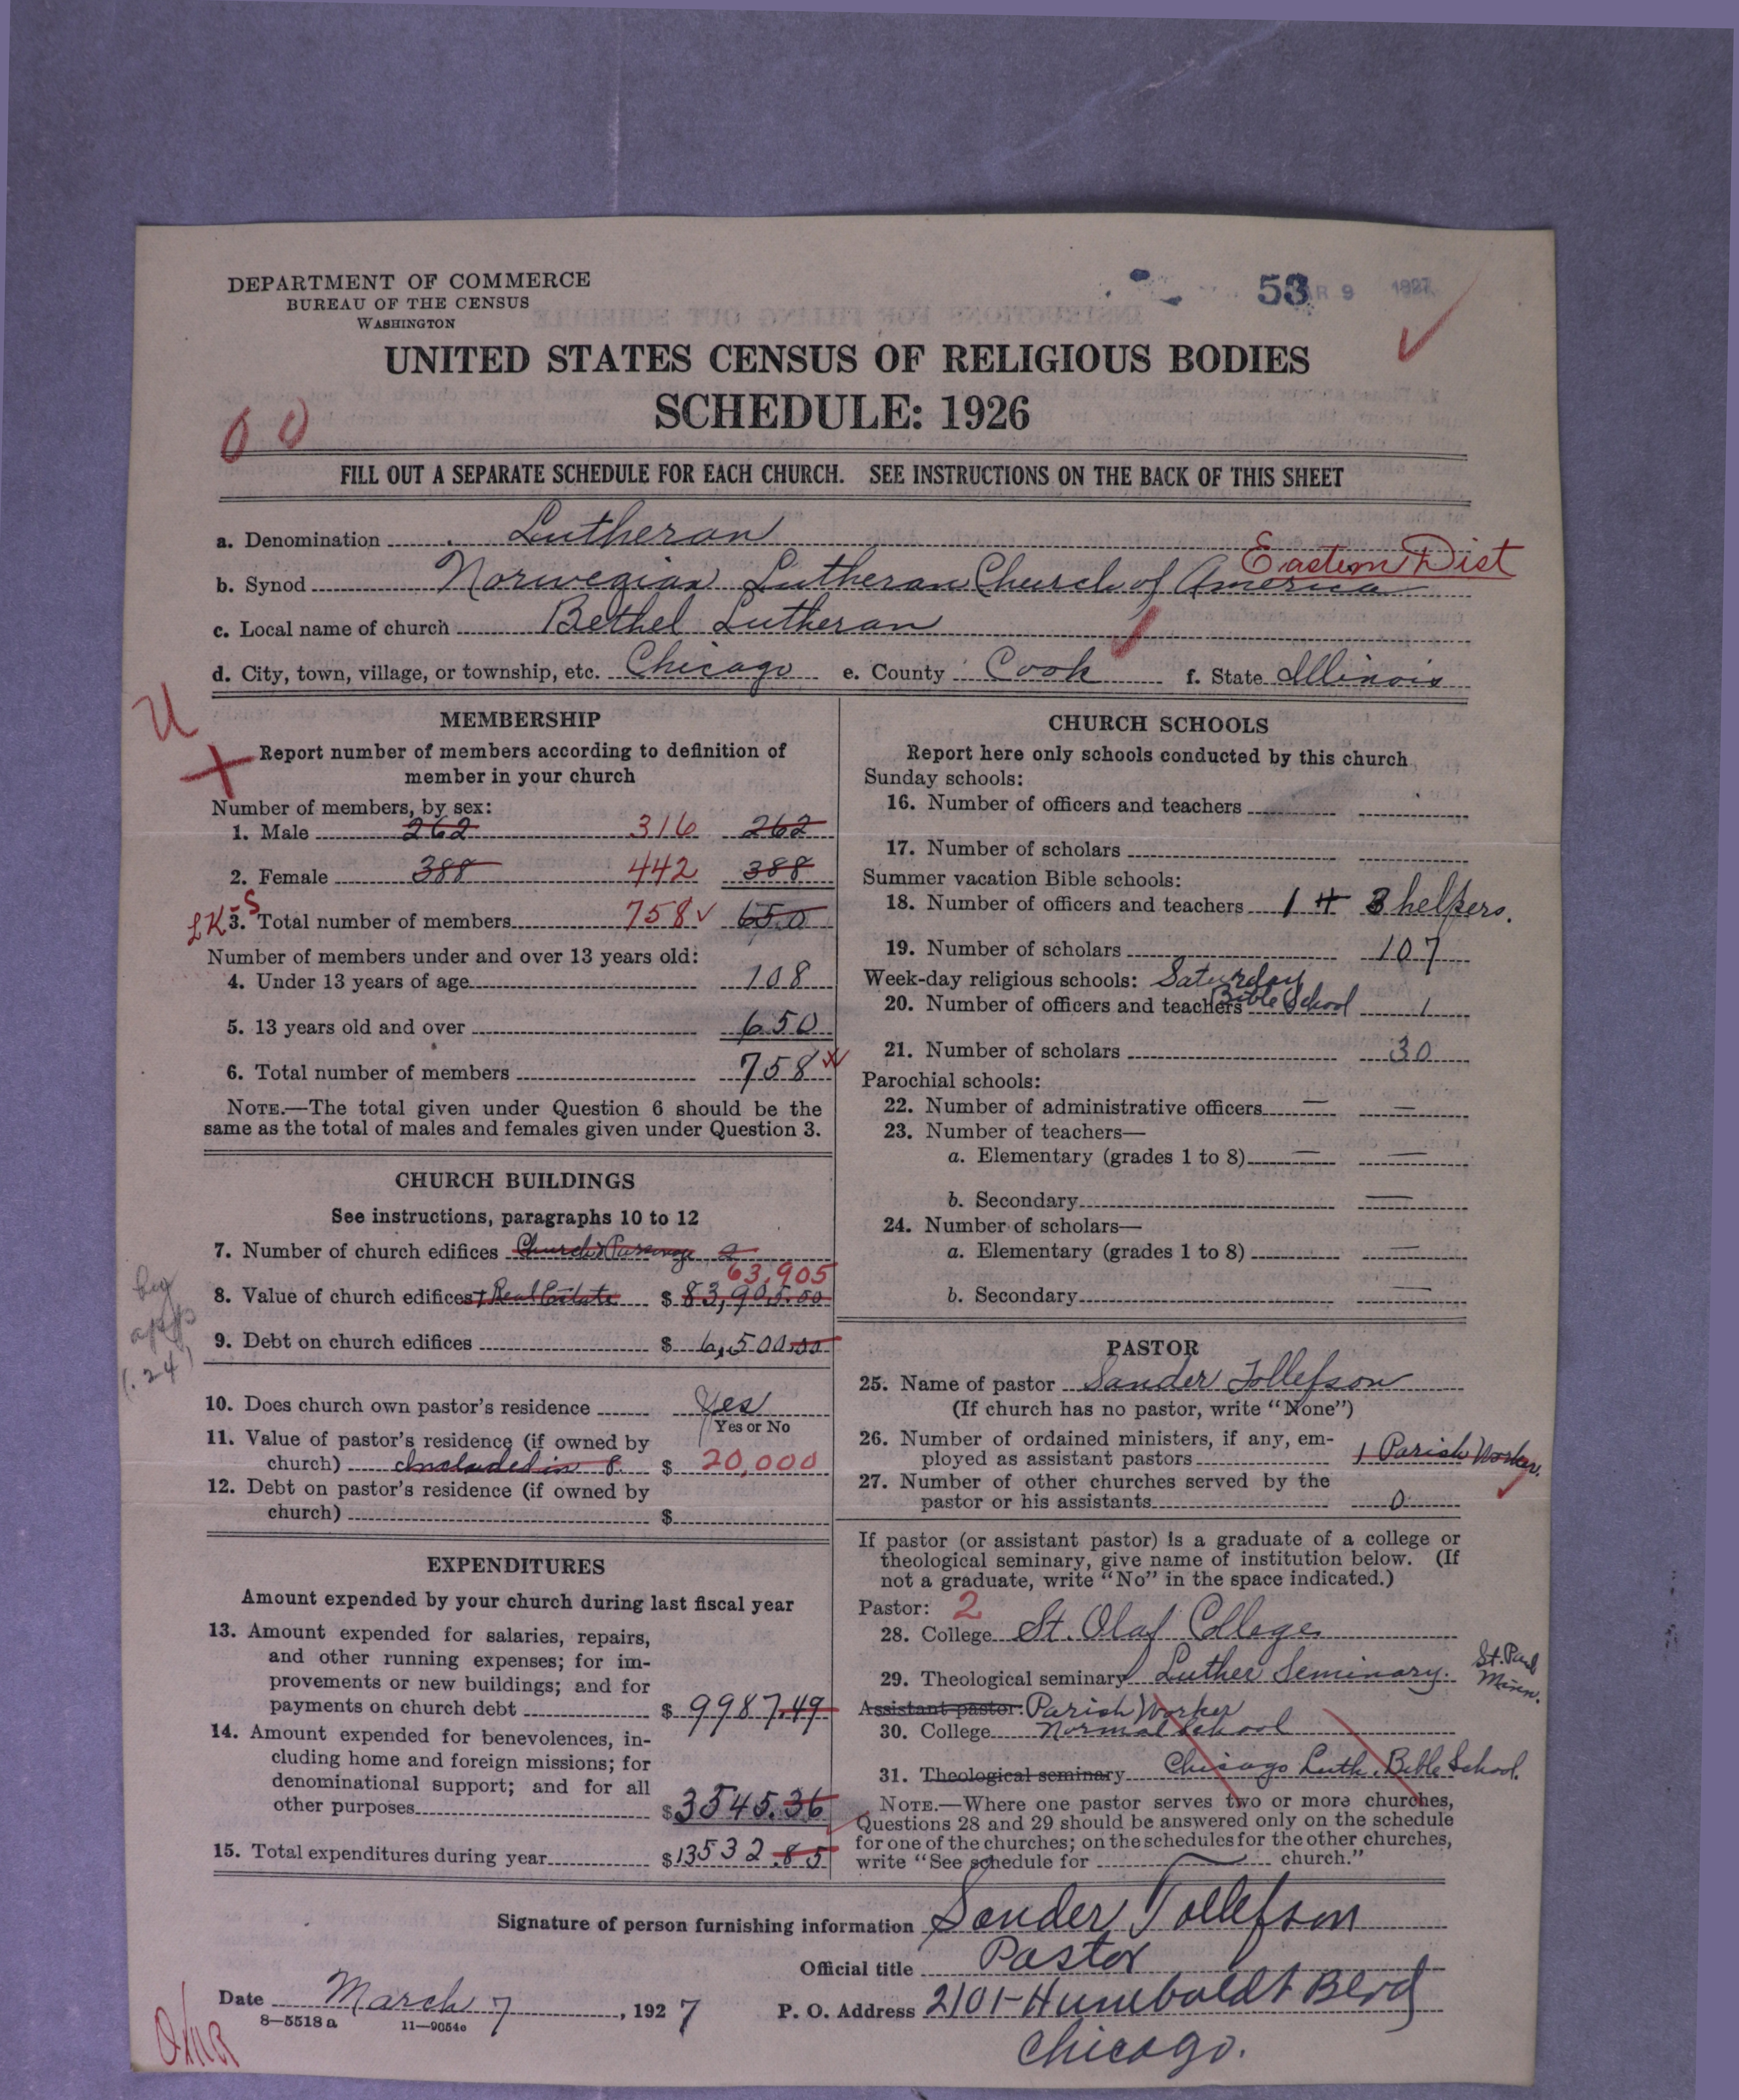 DEPARTMENT OF COMMERCE
BUREAU OF THE CENSUS
WASHINGTON
53 MAR 9 1927
UNITED STATES CENSUS OF RELIGIOUS BODIES
SCHEDULE: 1926
00
FILL OUT A SEPARATE SCHEDULE FOR EACH CHURCH. SEE INSTRUCTIONS ON THE BACK OF THIS SHEET
a. Denomination Lutheran
Eastern Dist
b. Synod Norwegian Lutheran Church of America
c. Local name of church Bethel Lutheran
d. City, town, village, or township, etc. Chicago e. County Cook f. State Illinois
U
MEMBERSHIP
Report number of members according to definition of
member in your church
Number of members, by sex:
1. Male 262 316 262
2. Female 388 442 388
LK-S
3. Total number of members 758 ✓ 650
Number of members under and over 13 years old:
4. Under 13 years of age 108
5. 13 years old and over 650
6. Total number of members 758
NOTE.—The total given under Question 6 should be the
same as the total of males and females given under Question 3.
CHURCH BUILDINGS
See instructions, paragraphs 10 to 12
7. Number of church edifices Church & Parsonage 2
63,905
8. Value of church edifices + Real Estate $ 83,905.00
9. Debt on church edifices $ 6,500.00
by
app
(.24)
10. Does church own pastor's residence Yes
Yes or No
11. Value of pastor's residence (if owned by
church) Included in 8. $ 20,000
12. Debt on pastor's residence (if owned by
church) $
EXPENDITURES
Amount expended by your church during last fiscal year
13. Amount expended for salaries, repairs,
and other running expenses; for im-
provements or new buildings; and for
payments on church debt $ 9987.49
14. Amount expended for benevolences, in-
cluding home and foreign missions; for
denominational support; and for all
other purposes $ 3545.36
15. Total expenditures during year $ 13532.85
CHURCH SCHOOLS
Report here only schools conducted by this church
Sunday schools:
16. Number of officers and teachers
17. Number of scholars
Summer vacation Bible schools:
18. Number of officers and teachers 1 + 3 helpers.
19. Number of scholars 107
Week-day religious schools: Saturday
20. Number of officers and teachers Bible School 1
21. Number of scholars 30
Parochial schools:
22. Number of administrative officers — —
23. Number of teachers—
a. Elementary (grades 1 to 8) — —
b. Secondary —
24. Number of scholars—
a. Elementary (grades 1 to 8) —
b. Secondary —
PASTOR
25. Name of pastor Sander Tollefson
(If church has no pastor, write "None")
26. Number of ordained ministers, if any, em-
ployed as assistant pastors 1 Parish Worker.
27. Number of other churches served by the
pastor or his assistants 0
If pastor (or assistant pastor) is a graduate of a college or
theological seminary, give name of institution below. (If
not a graduate, write "No" in the space indicated.)
Pastor: 2
28. College St. Olaf College
29. Theological seminary Luther Seminary. St. Paul
Minn.
Assistant pastor: Parish Worker
30. College Normal School
31. Theological seminary Chicago Luth. Bible School.
NOTE.—Where one pastor serves two or more churches,
Questions 28 and 29 should be answered only on the schedule
for one of the churches; on the schedules for the other churches,
write "See schedule for church."
Signature of person furnishing information Sander Tollefson
Official title Pastor
Date March 7, 1927 P. O. Address 2101-Humboldt Blvd
8—5518 a 11—9054c
Chicago.